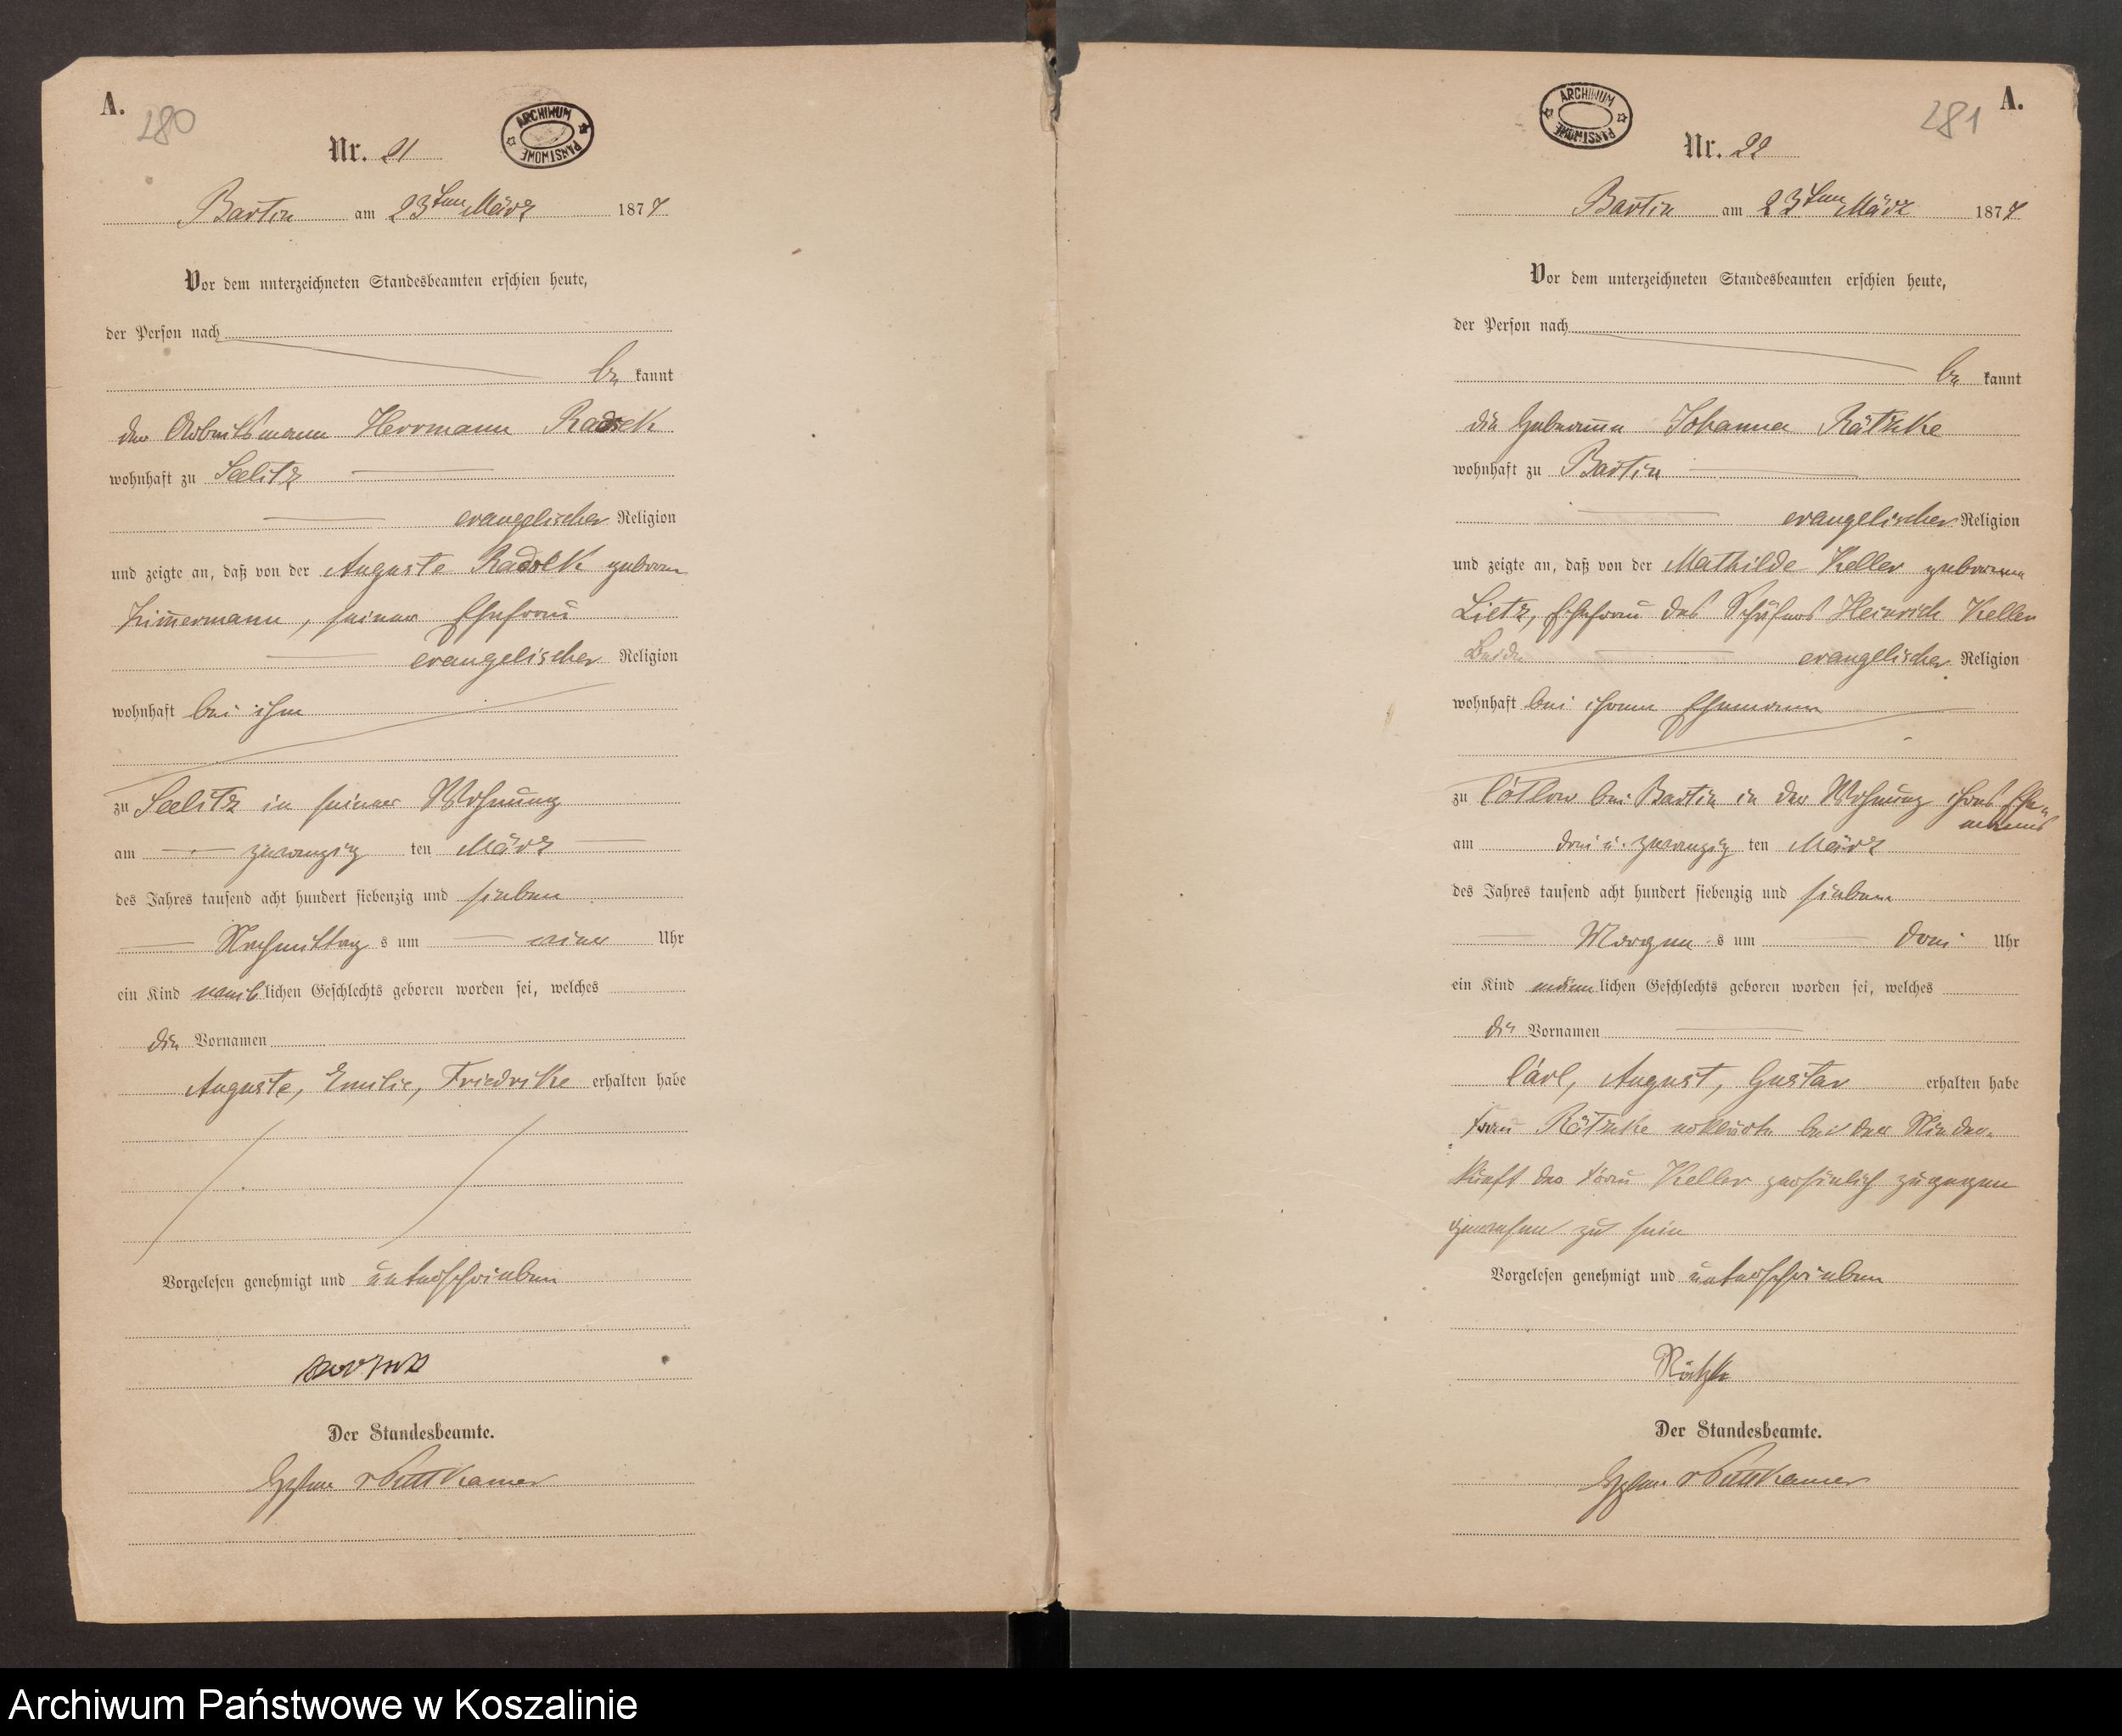 A.
280
ARCHIWUM PAŃSTWOWE
Nr. 21
Bartin am 23ten März 1877
Vor dem unterzeichneten Standesbeamten erschien heute,
der Person nach
be kannt
der Arbeitsmann Herrmann
wohnhaft zu Seelitz
evangelischer Religion
und zeigte an, daß von der Auguste geborene
Zimmermann, seiner Ehefrau
evangelischer Religion
wohnhaft bei ihm
zu Seelitz in seiner Wohnung
am zwanzig ten März
des Jahres tausend acht hundert siebenzig und sieben
Nachmittag s um einer Uhr
ein Kind weib lichen Geschlechts geboren worden sei, welches
die Vornamen
Auguste, Emilie, Friedrike erhalten habe
Vorgelesen genehmigt und unterschrieben
Der Standesbeamte.
v Puttkamer
A.
281
ARCHIWUM PAŃSTWOWE
Nr. 22
Bartin am 23ten März 1877
Vor dem unterzeichneten Standesbeamten erschien heute,
der Person nach
be kannt
die Hebamme Johanna Rätzke
wohnhaft zu Bartin
evangelischer Religion
und zeigte an, daß von der Mathilde Keller geborene
Lietz, Ehefrau des Schäfers Heinrich Keller
Beide evangelischer Religion
wohnhaft bei ihrem Ehemann
zu bei Bartin in der Wohnung ihres Ehe-
manns
am drei u. zwanzig ten März
des Jahres tausend acht hundert siebenzig und sieben
Morgen s um drei Uhr
ein Kind männ lichen Geschlechts geboren worden sei, welches
die Vornamen
Carl, August, Gustav erhalten habe
Frau Rätzke erklärte bei der Nieder-
kunft der Frau Keller persönlich zugegen
gewesen zu sein
Vorgelesen genehmigt und unterschrieben
Rätzke
Der Standesbeamte.
v Puttkamer
Archiwum Państwowe w Koszalinie